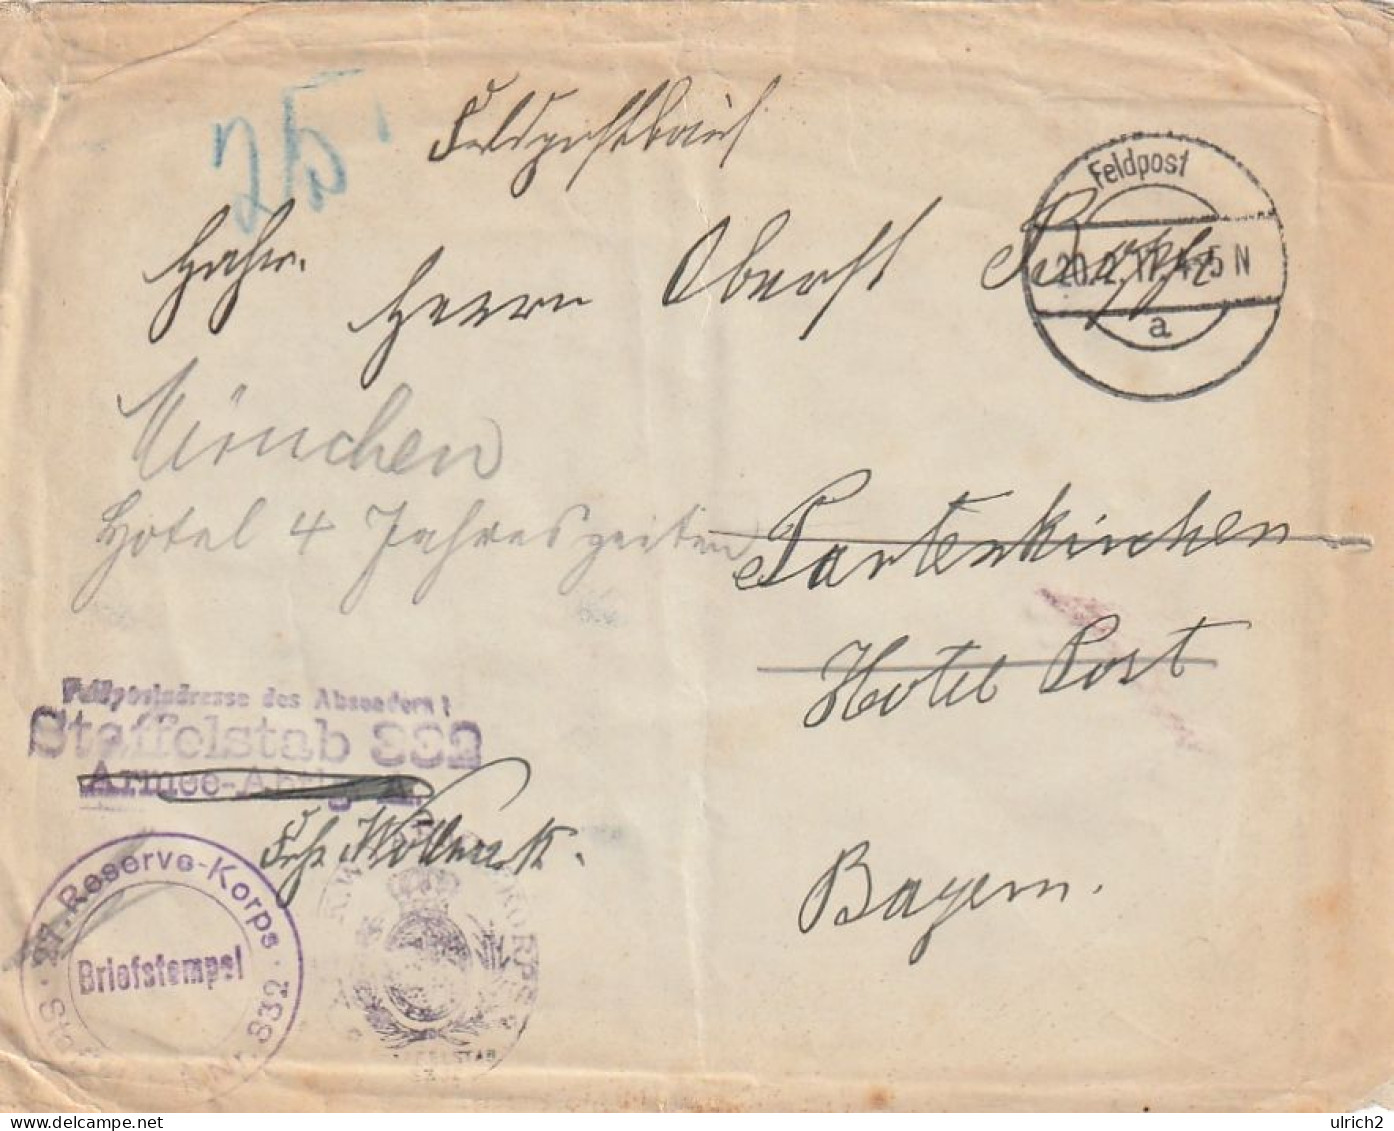 25
Feldpostbrief
Feldpost
20.2.17. 4-5 N
a
Herrn Oberst
München
Hotel 4 Jahreszeiten
Partenkirchen
Hotel Post
Bayern.
Feldpostadresse des Absenders:
Staffelstab 332
Armee-Abtlg. A.
27. Reserve-Korps
Briefstempel
Nr. 332